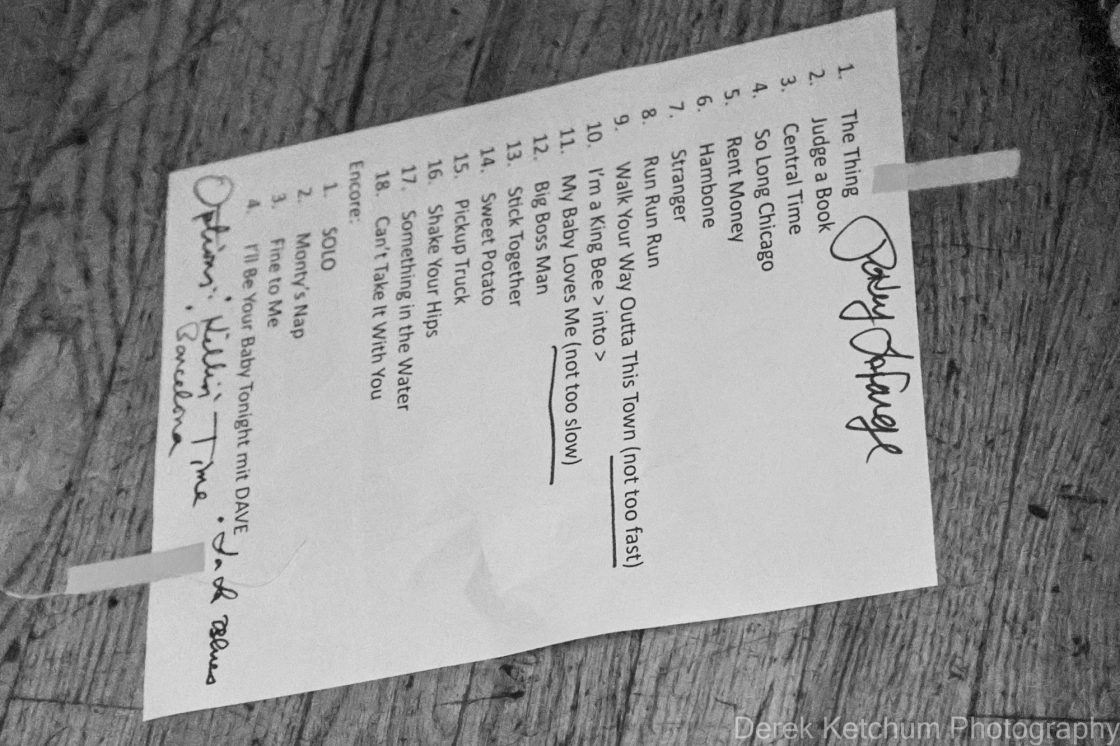 1. The Thing
2. Judge a Book
3. Central Time
4. So Long Chicago
5. Rent Money
6. Hambone
7. Stranger
8. Run Run Run
9. Walk Your Way Outta This Town (not too fast)
10. I'm a King Bee > into >
11. My Baby Loves Me (not too slow)
12. Big Boss Man
13. Stick Together
14. Sweet Potato
15. Pickup Truck
16. Shake Your Hips
17. Something in the Water
18. Can't Take It With You
Encore:
1. SOLO
2. Monty's Nap
3. Fine to Me
4. I'll Be Your Baby Tonight mit DAVE
Options: • Killin Time • Blues
• Barcelona
Pokey LaFarge
Derek Ketchum Photography